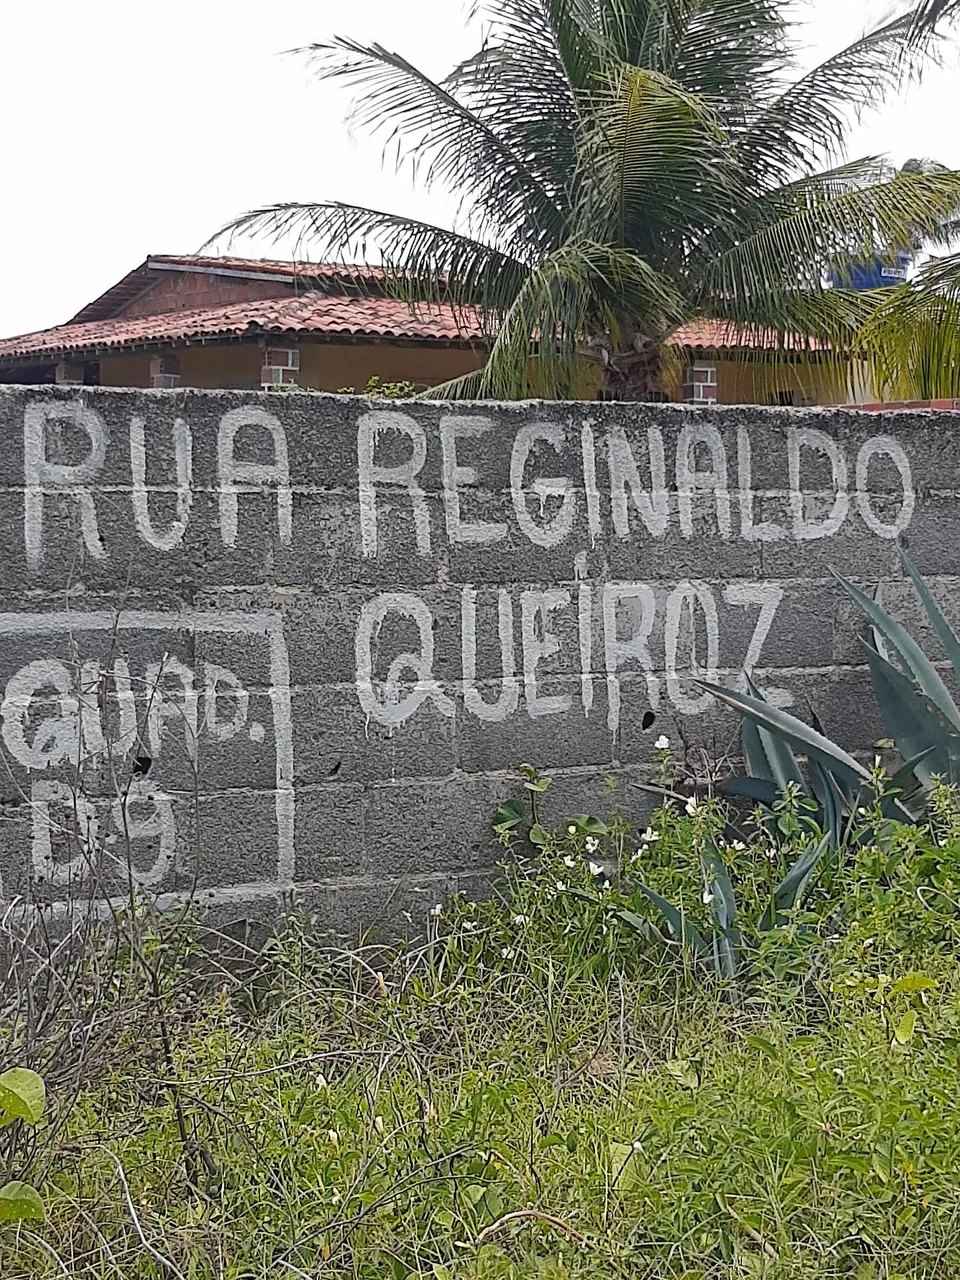 RUA REGINALDO
QUEÍROZ
QUAD.
D9